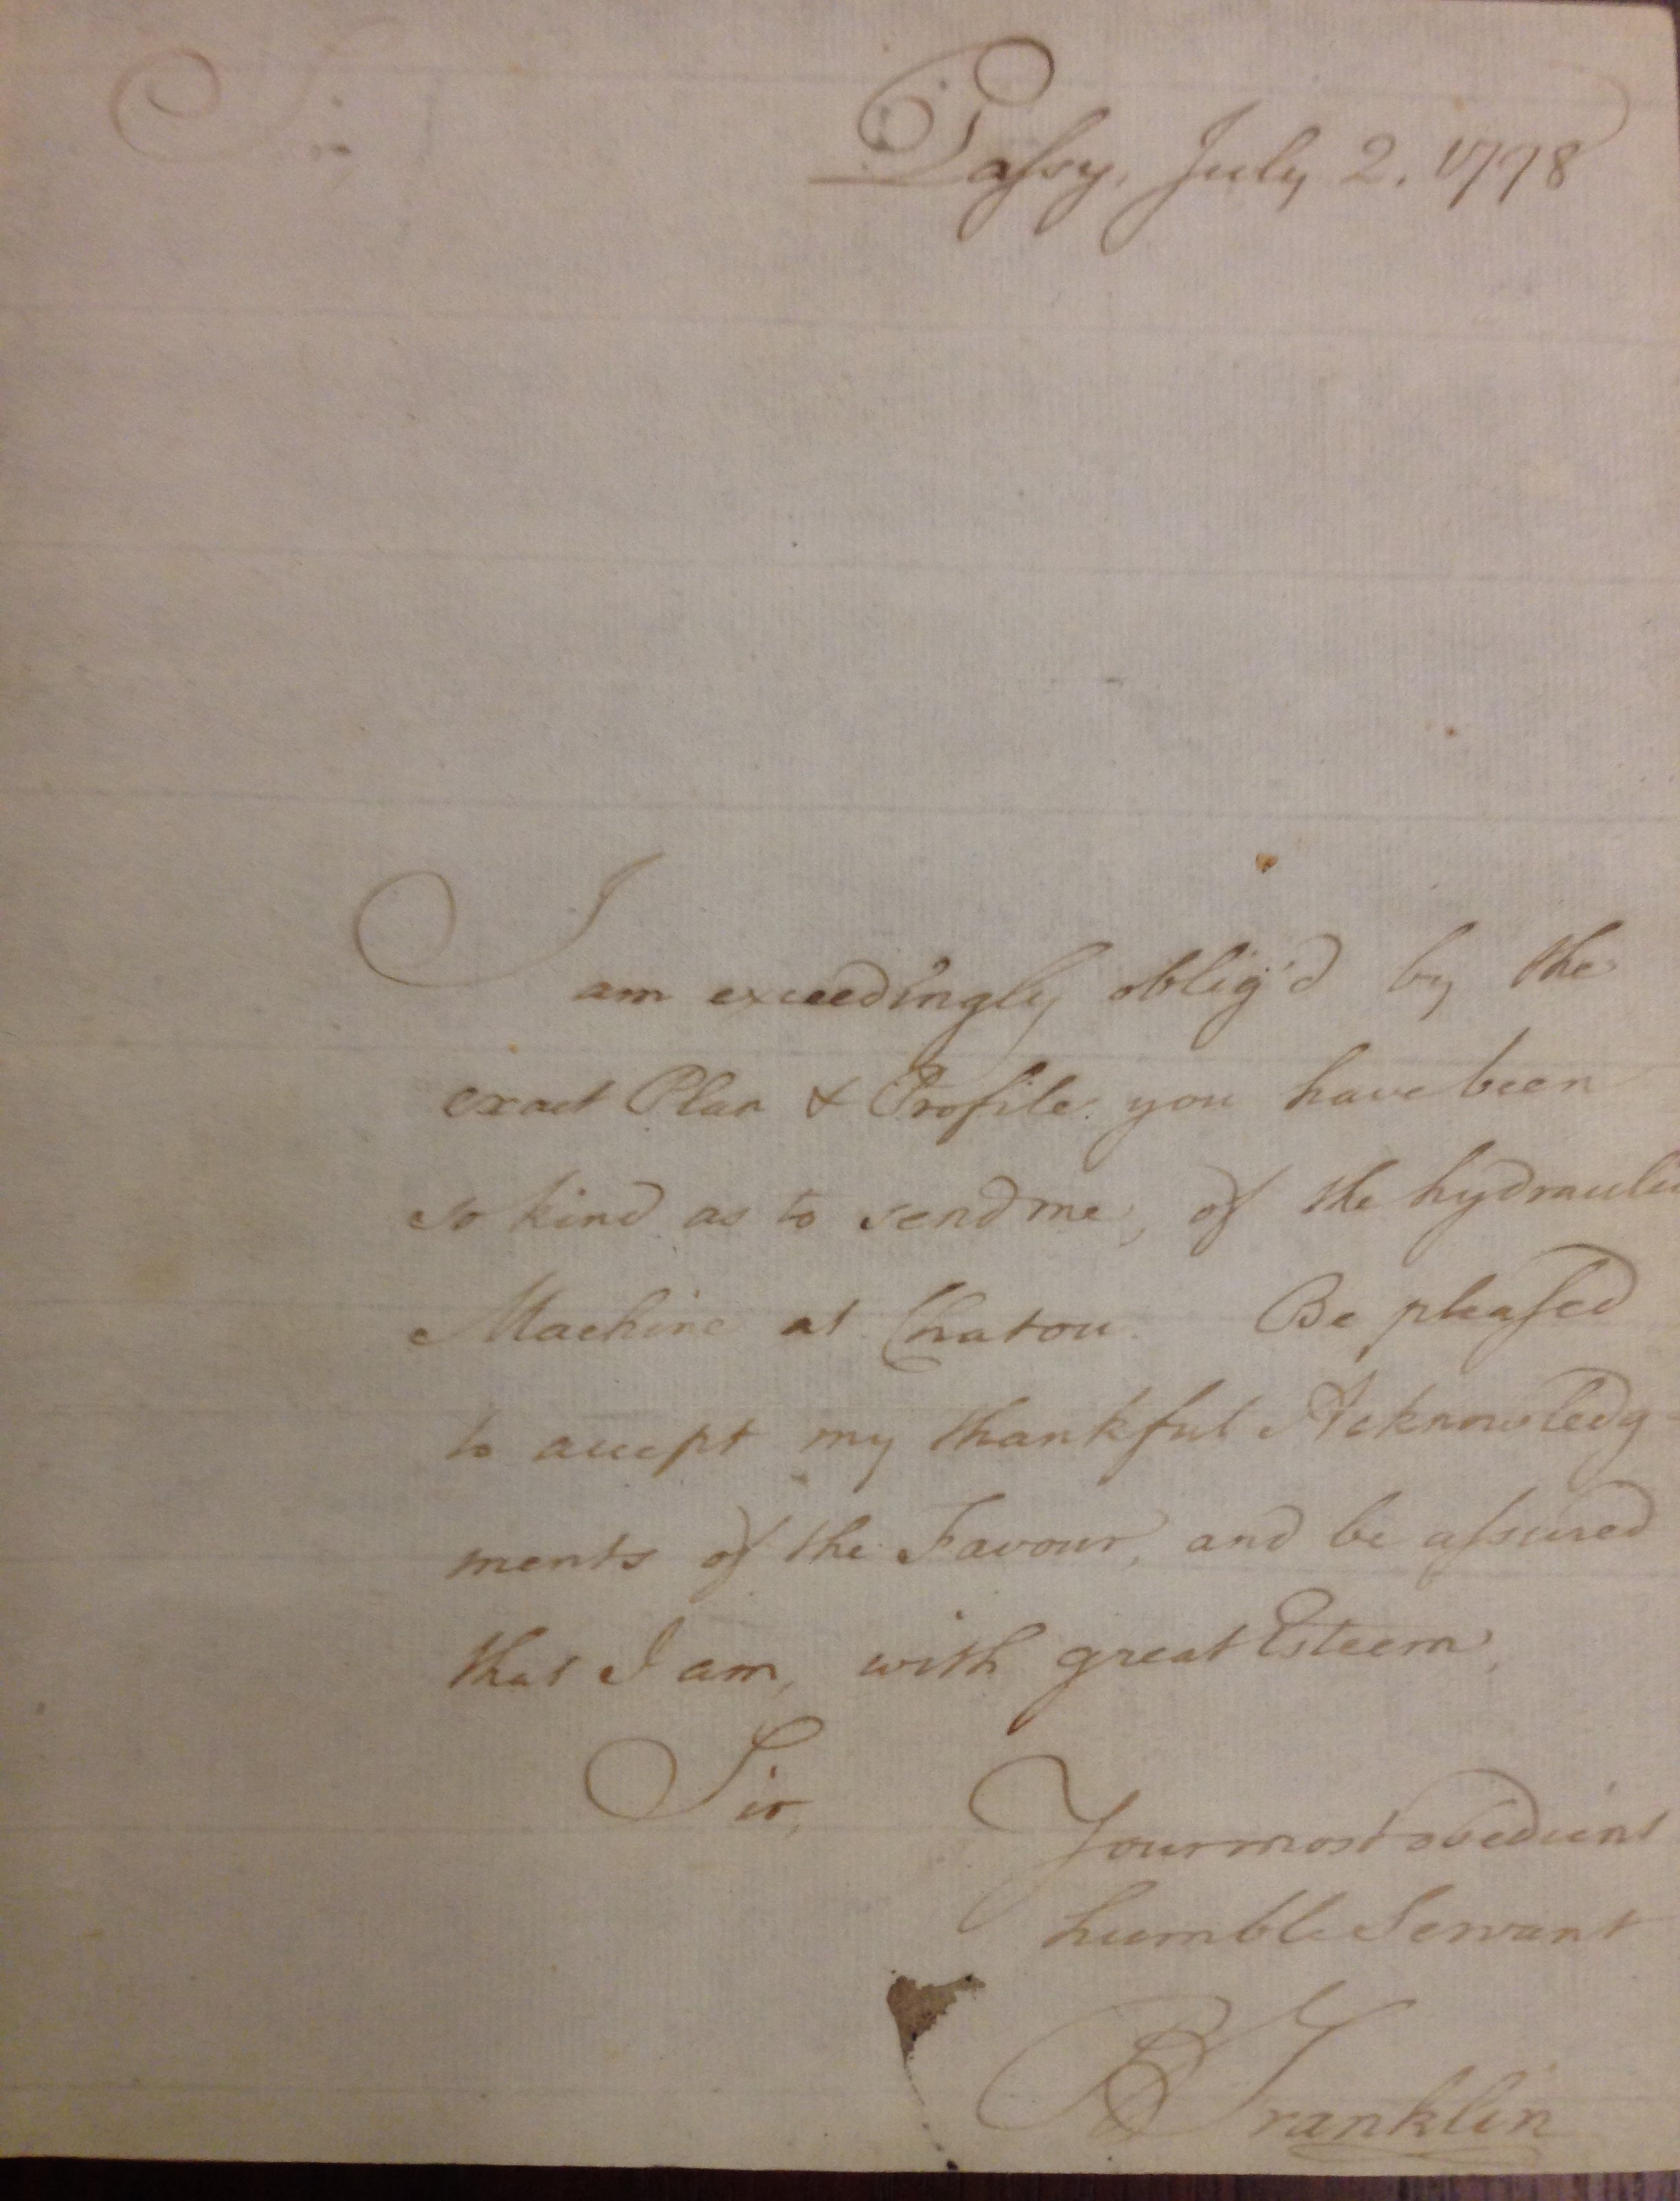 Sir,
Passy, July 2. 1778
I am exceedingly oblig'd by the
exact Plan & Profile you have been
so kind as to send me, of the hydraulic
Machine at Chatou. Be pleased
to accept my thankful Acknowledg-
ments of the Favour, and be assured
that I am, with great Esteem,
Sir,
Your most obedient
humble Servant
B Franklin